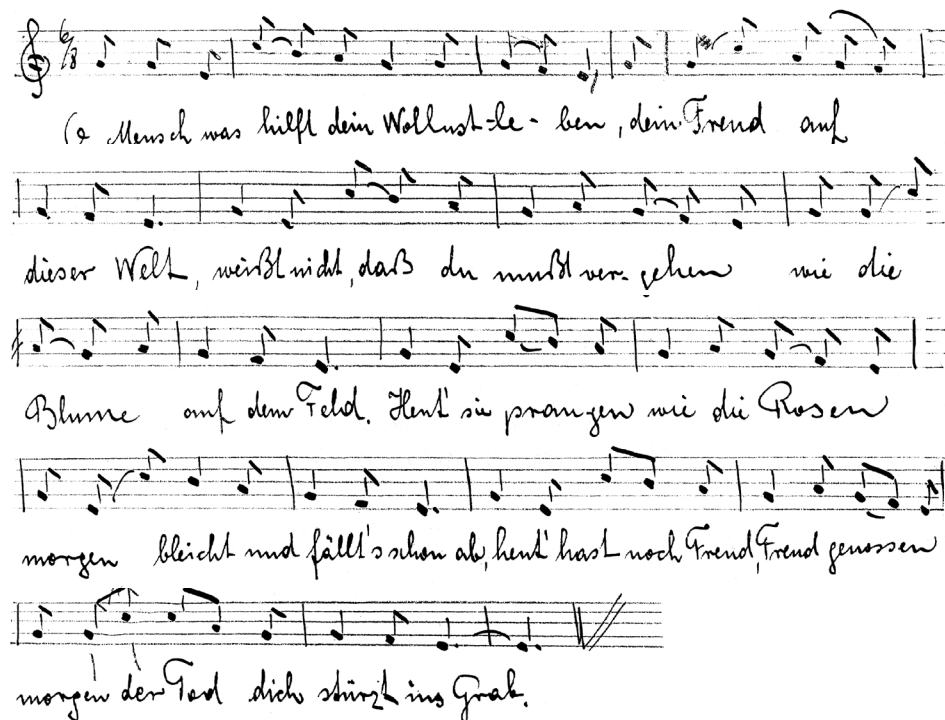 6/8
O Mensch was hilft dein Wollust-le-ben, dein Freud auf
dieser Welt, weißt nicht, daß du mußt ver-gehen wie die
Blume auf dem Feld. Heut' sie prangen wie die Rosen
morgen bleicht und fällt's schon ab, heut' hast noch Freud, Freud genossen
morgen der Tod dich stürzt ins Grab.